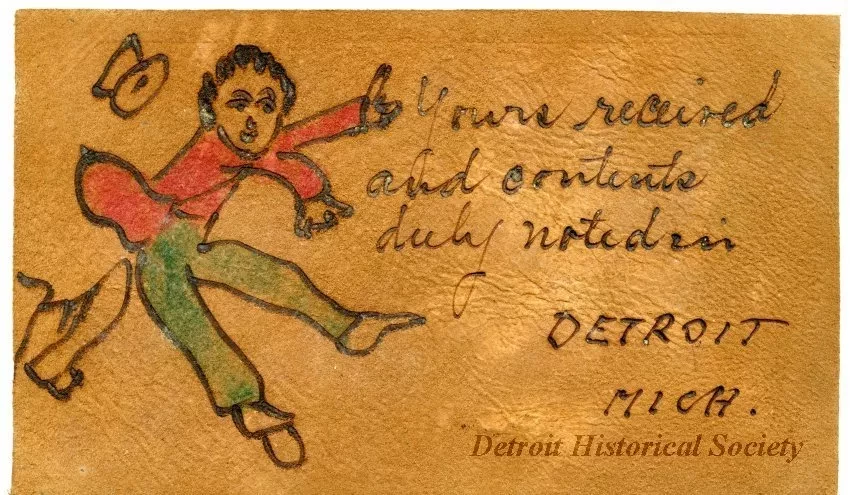 Yours received
and contents
duly noted in
DETROIT
MICH.
Detroit Historical Society